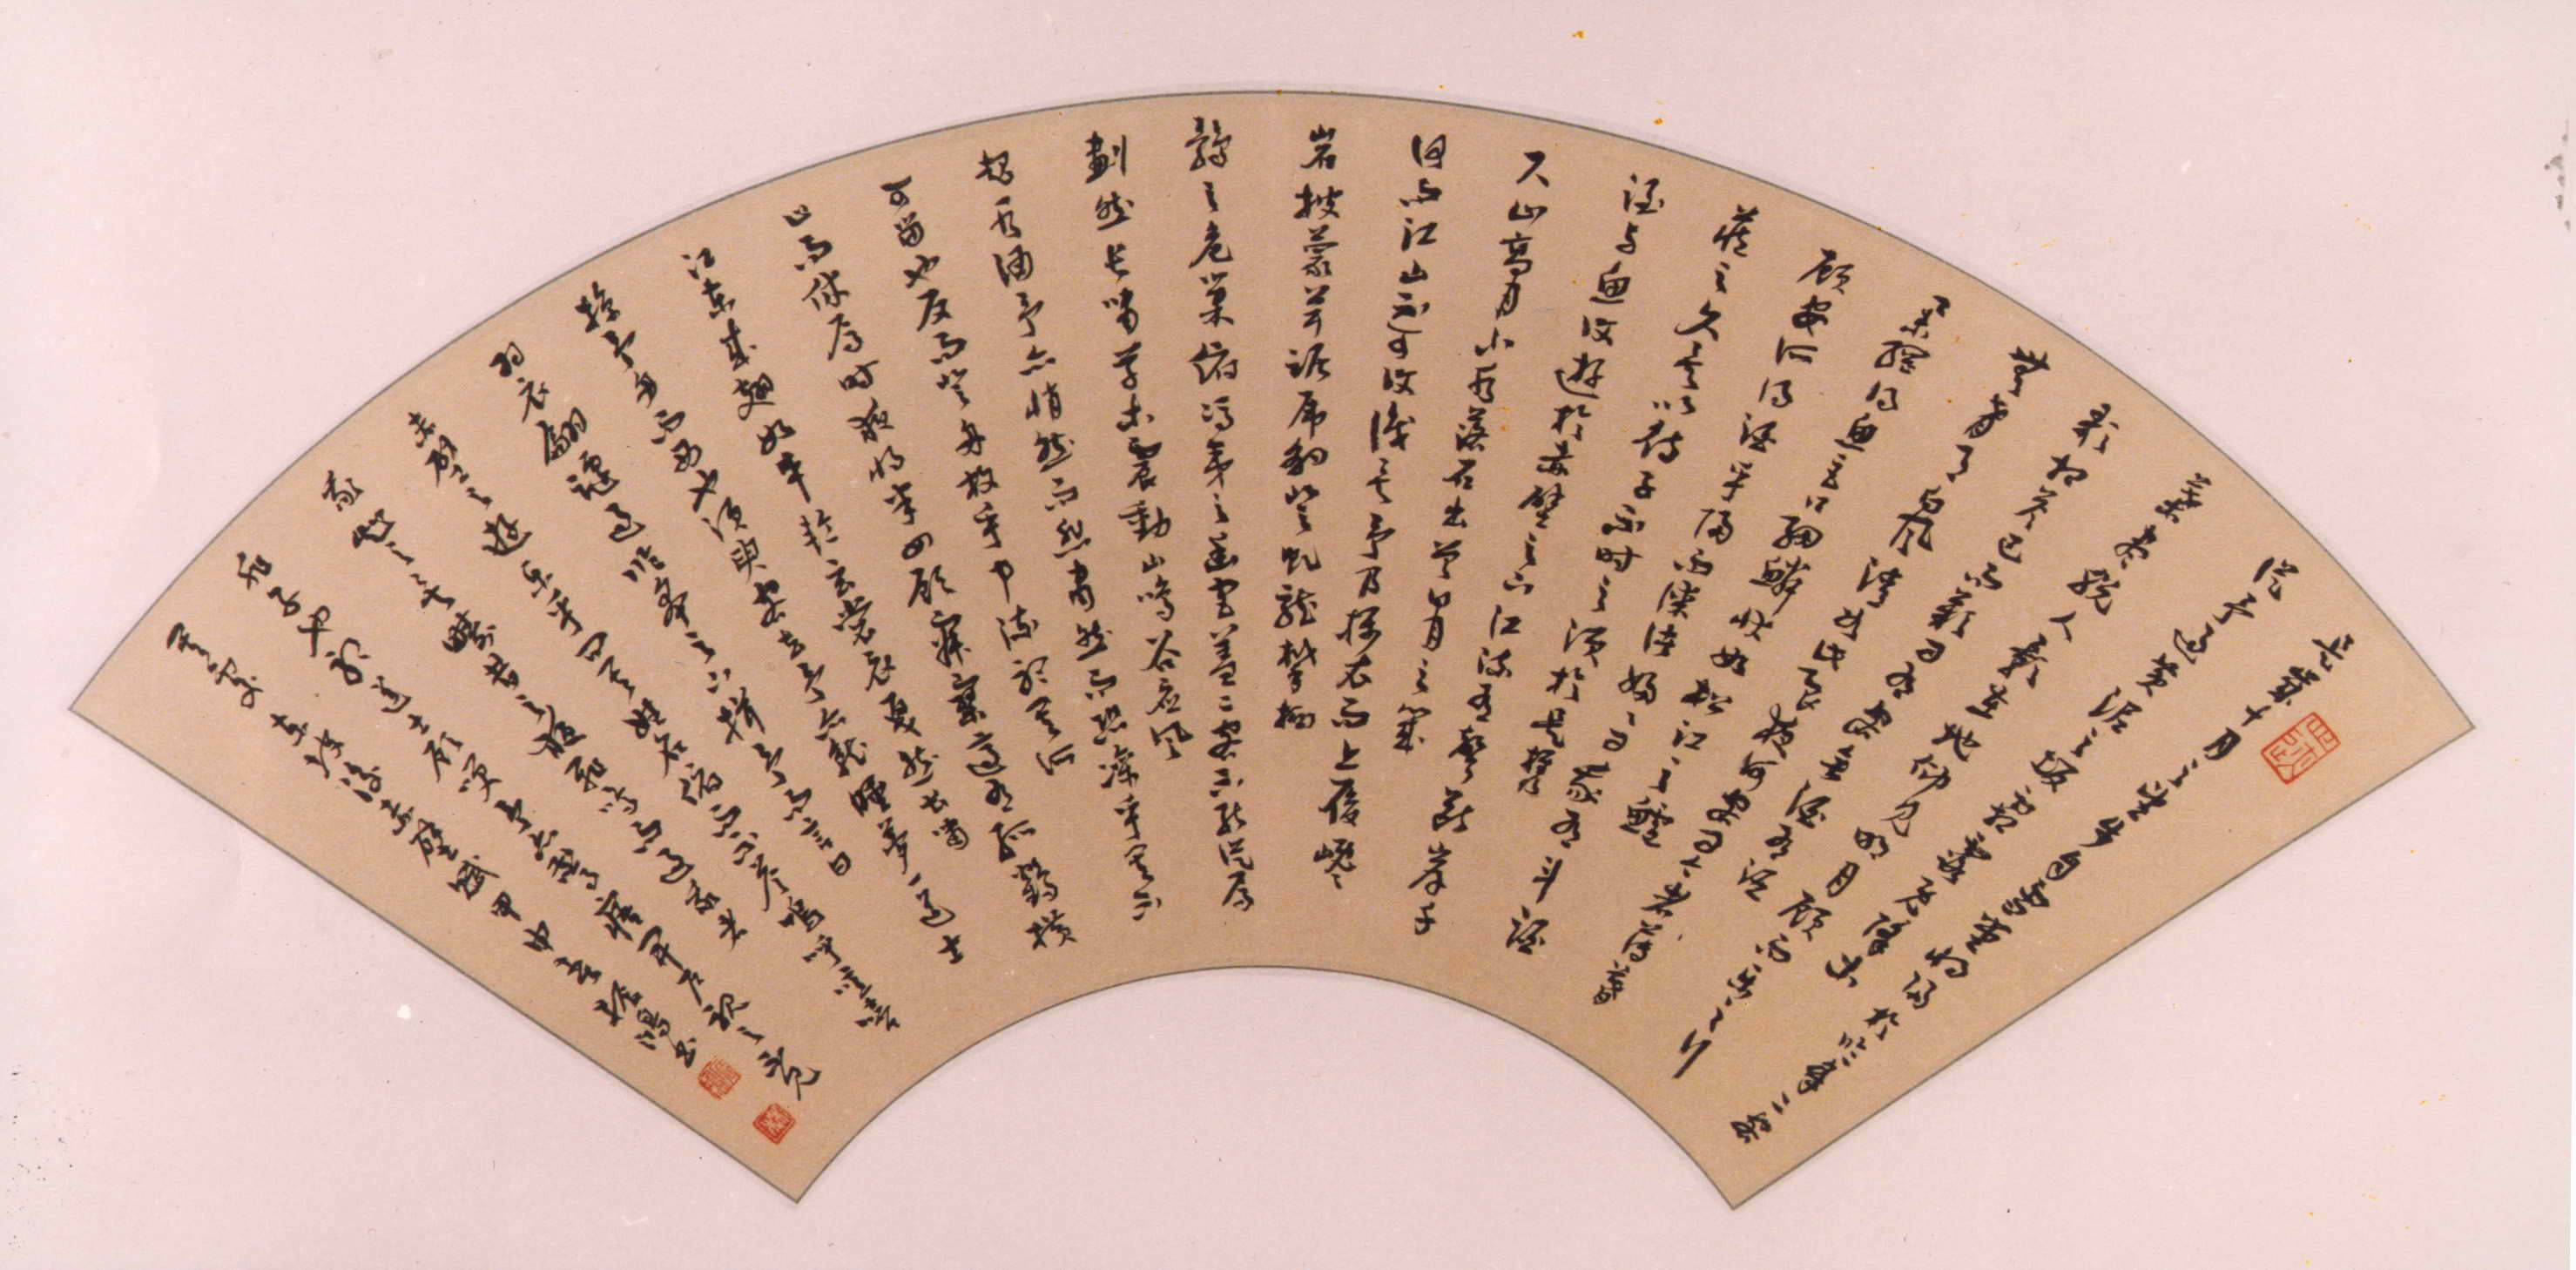 是歲十月之望步自雪堂將歸於臨皋二客
從予過黃泥之坂霜露既降木
葉盡脫人影在地仰見明月顧而樂之行
歌相答已而歎曰有客無酒有酒
無肴月白風清如此良夜何客曰今者薄暮
舉網得魚巨口細鱗狀如松江之鱸
顧安所得酒乎歸而謀諸婦婦曰我有斗酒
藏之久矣以待子不時之須於是攜
酒與魚復遊於赤壁之下江流有聲斷岸千
尺山高月小水落石出曾日月之幾
何而江山不可復識矣予乃攝衣而上履巉
岩披蒙茸踞虎豹登虬龍攀栖
鶻之危巢俯馮夷之幽宮蓋二客不能從焉
劃然長嘯草木震動山鳴谷應風
起水涌予亦悄然而悲肅然而恐凜乎其不
可留也反而登舟放乎中流聽其所
止而休焉時夜將半四顧寂寥適有孤鶴橫
江東來翅如車輪玄裳縞衣戛然長
掠予舟而西也須臾客去予亦就睡夢一道士
羽衣翩躚過臨皋之下揖予而言曰
赤壁之遊樂乎問其姓名俯而不答嗚呼噫嘻
我知之矣疇昔之夜飛鳴而過我者
非子也耶道士顧笑予亦驚寤開戶視之不見
其處 東坡後赤壁賦甲申 書